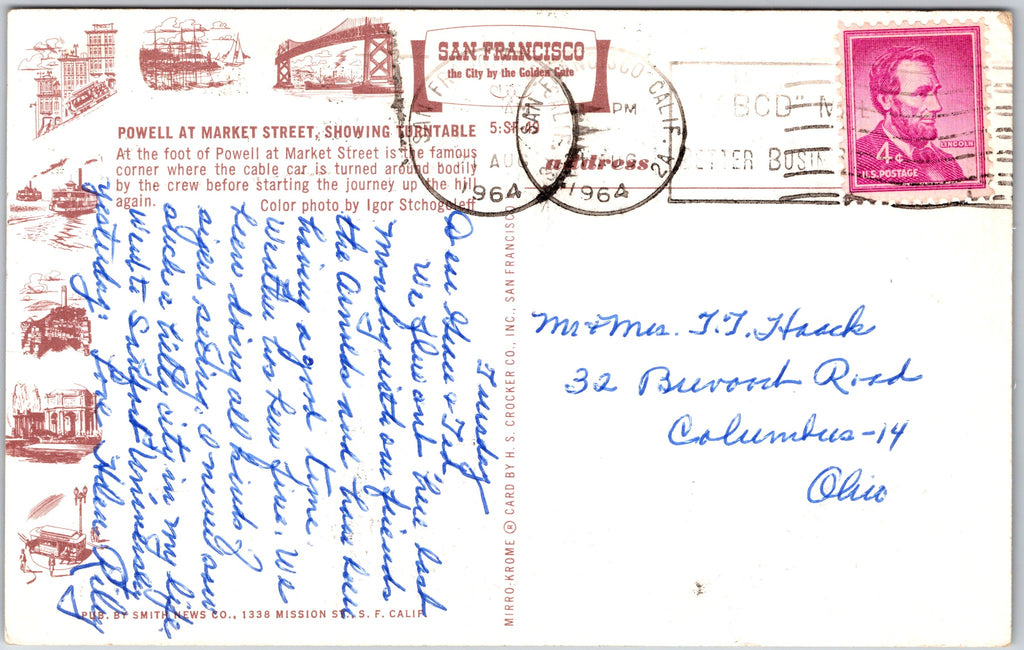 SAN FRANCISCO
the City by the Golden Gate
POWELL AT MARKET STREET, SHOWING TURNTABLE 5:SF.49
At the foot of Powell at Market Street is the famous
corner where the cable car is turned around bodily
by the crew before starting the journey up the hill
again. Color photo by Igor Stchogoleff
address
SAN FRANCISCO CALIF.
PM
AU
1964
1964
24
"BCD"
BETTER BUSIN
4¢
LINCOLN
U.S. POSTAGE
Tuesday
Dear Gun & Ted,
We flew out here last
Monday with our friends
the Arnolds and have been
having a good time.
Weather has been fine. We
been doing all kinds of
sight seeing. I never saw
such a hilly city in my life.
Went to Sanford University
yesterday. Love Helen, Billy
Mr & Mrs. T.T. Haack
32 Brevoort Road
Columbus-14
Ohio
MIRRO-KROME ® CARD BY H. S. CROCKER CO., INC., SAN FRANCISCO
PUB. BY SMITH NEWS CO., 1338 MISSION ST., S. F. CALIF.